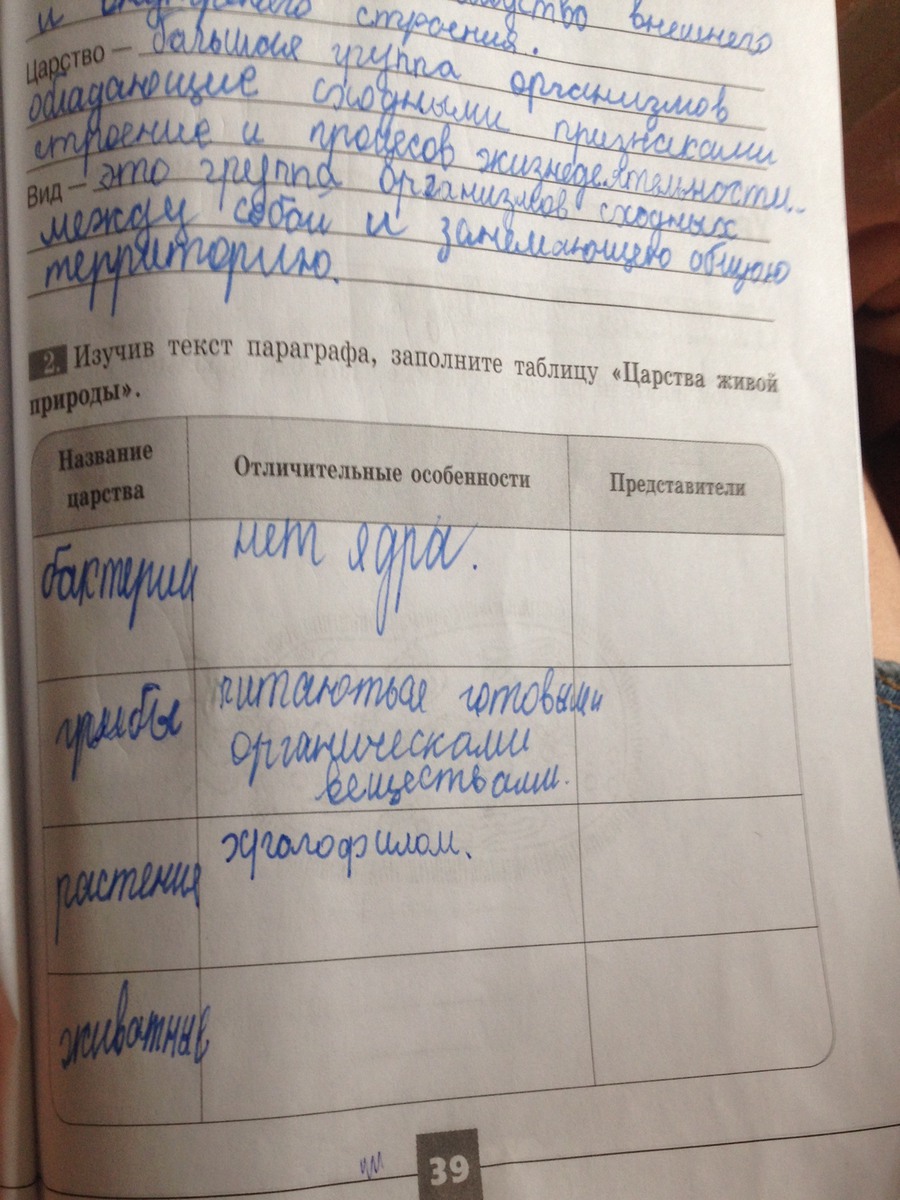 и строения. внешнего
Царство — большая группа организмов
обладающие сходными признаками
строение и процесов жизнедеятельности..
Вид — это группа организмов сходных
между собой и занемающею общую
территорию.
2. Изучив текст параграфа, заполните таблицу «Царства живой
природы».
Название
царства
Отличительные особенности
Представители
бактерии
нет ядра.
грибы
питаютьая готовыми
органическами
веществами.
растения
хролофилом.
живатные
39